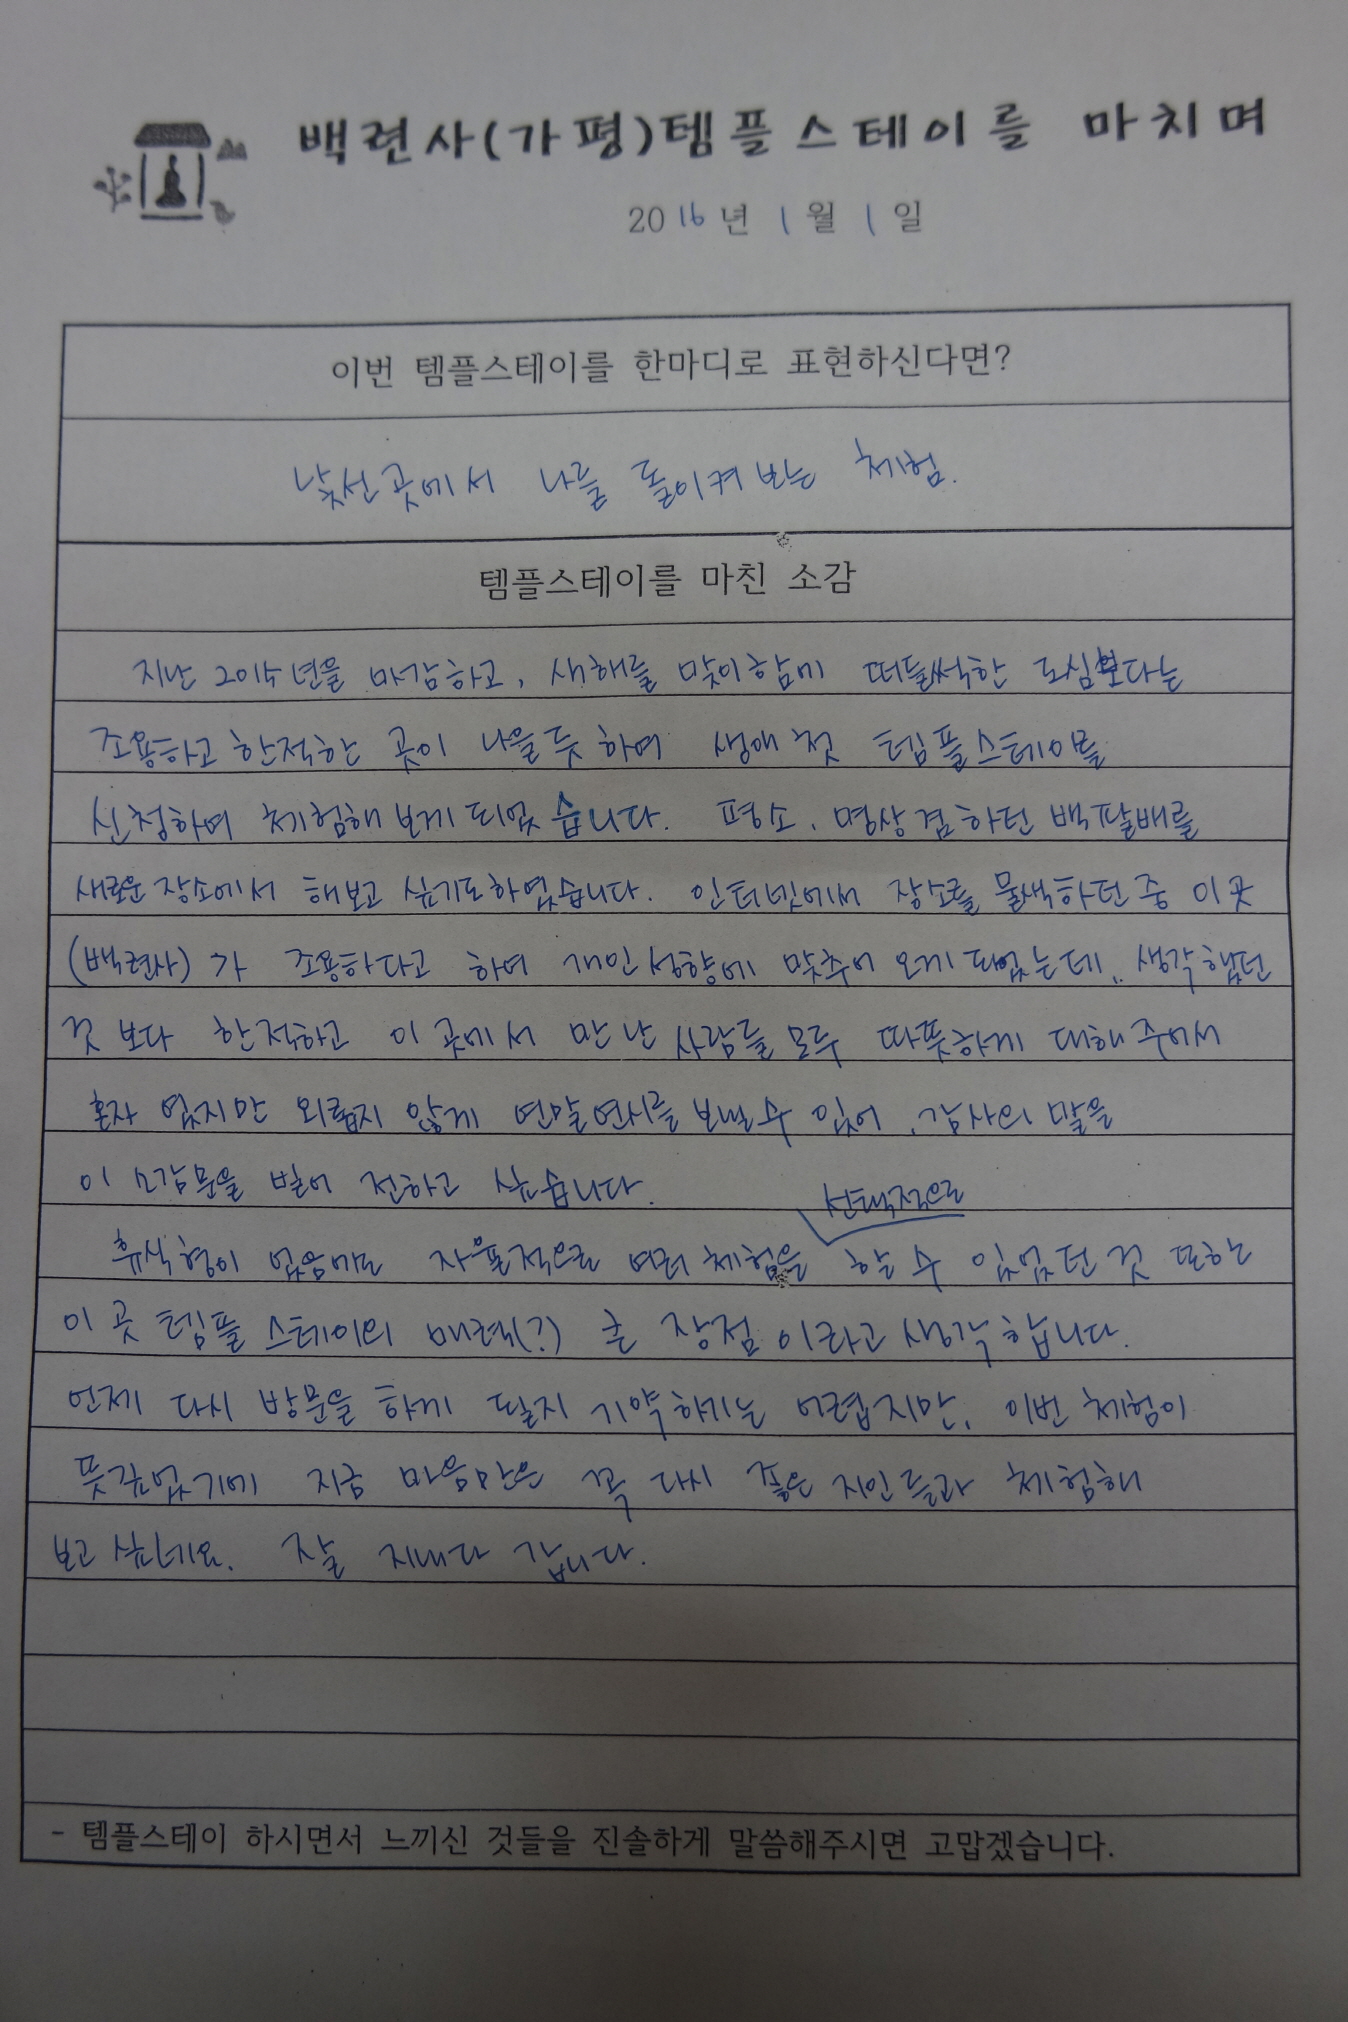 백련사(가평)템플스테이를 마치며
2016년 1월 1일
이번 템플스테이를 한마디로 표현하신다면?
낯선 곳에서 나를 돌이켜 보는 체험.
템플스테이를 마친 소감
지난 2015년을 마감하고, 새해를 맞이함에 떠들썩한 도심보다는
조용하고 한적한 곳이 나을듯 하여 생애 첫 템플스테이를
신청하여 체험해 보게 되었습니다. 평소, 명상 겸 하던 백팔배를
새로운 장소에서 해보고 싶기도하였습니다. 인터넷에서 장소를 물색하던 중 이곳
(백련사)가 조용하다고 하여 개인 성향에 맞추어 오게 되었는데, 생각했던
것 보다 한적하고 이 곳에서 만난 사람들 모두 따뜻하게 대해 주어서
혼자 였지만 외롭지 않게 연말연시를 보낼 수 있어, 감사의 말을
이 소감문을 빌어 전하고 싶습니다.
선택적으로
휴식형이 었음에도 자율적으로 여러 체험을 할 수 있었던 것 또한
이 곳 템플 스테이의 매력(?) 혹 장점 이라고 생각합니다.
언제 다시 방문을 하게 될지 기약하기는 어렵지만, 이번 체험이
뜻깊었기에 지금 마음만은 꼭 다시 좋은 지인들과 체험해
보고 싶네요. 잘 지내다 갑니다.
- 템플스테이 하시면서 느끼신 것들을 진솔하게 말씀해주시면 고맙겠습니다.